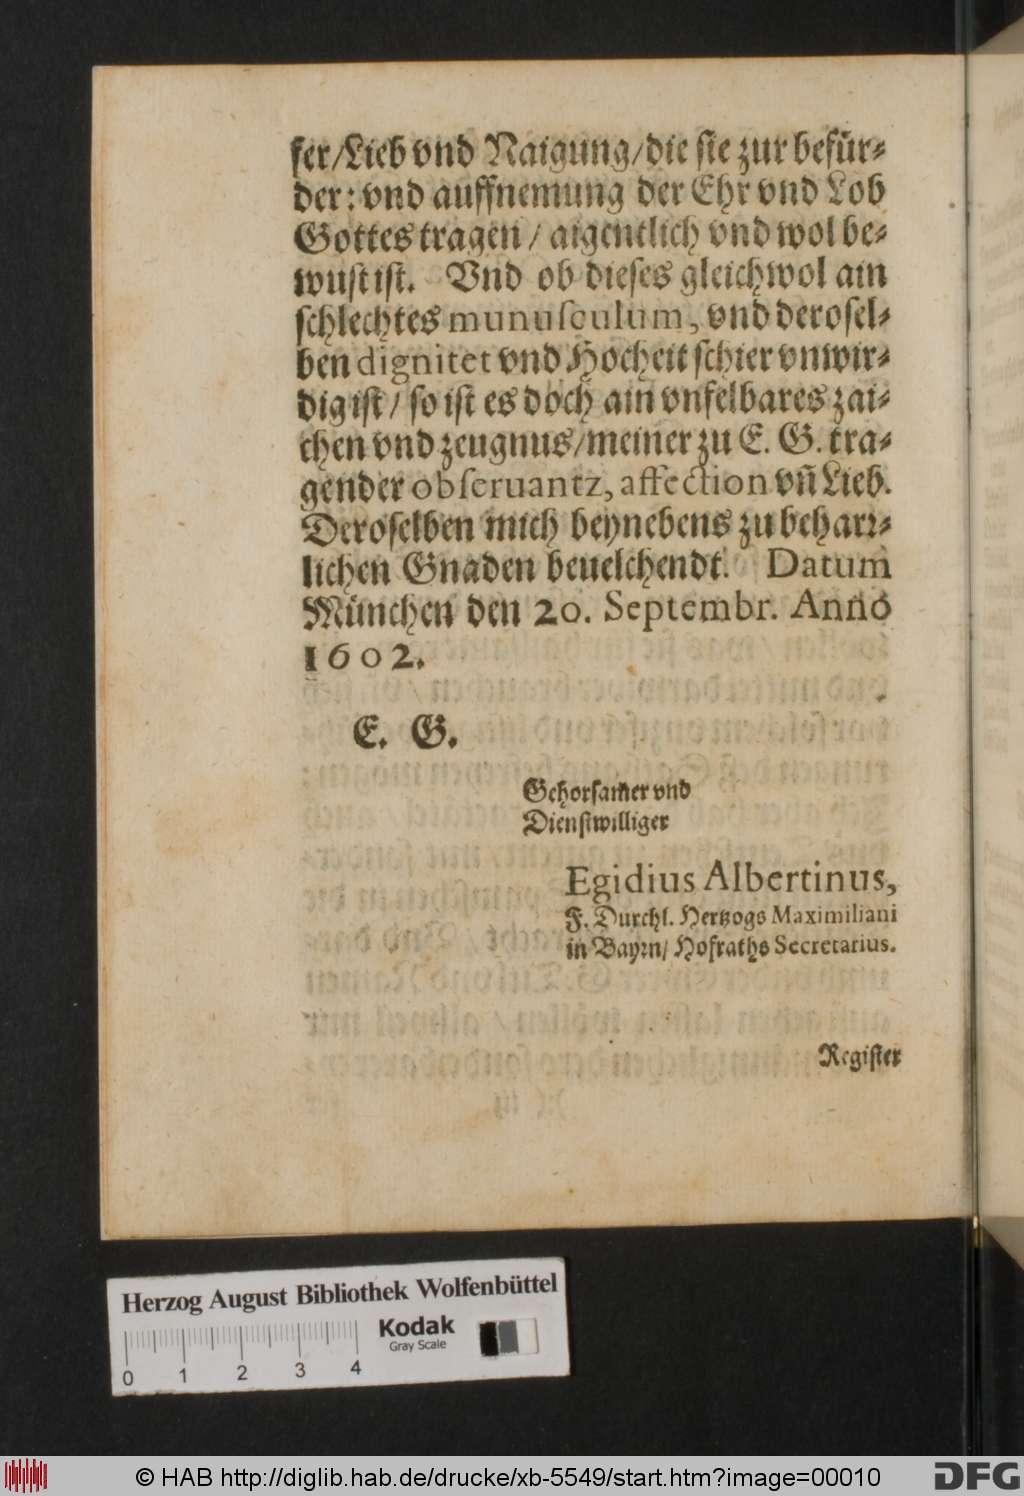 fer/Lieb vnd Naigung/die sie zur befür-
der: vnd auffnemung der Ehr vnd Lob
Gottes tragen / aigentlich vnd wol be-
wust ist. Vnd ob dieses gleichwol ain
schlechtes munusculum, vnd derosel-
ben dignitet vnd Hocheit schier vnwir-
dig ist/ so ist es doch ain vnfelbares zai-
chen vnd zeugnus/meiner zu E. G. tra-
gender obseruantz, affection vñ Lieb.
Deroselben mich beynebens zu beharr-
lichen Gnaden beuelchendt. Datum
München den 20. Septembr. Anno
1602.
E. G.
Gehorsamer vnd
Dienstwilliger
Egidius Albertinus,
F. Durchl. Hertzogs Maximiliani
in Bayrn/ Hofraths Secretarius.
Register
Herzog August Bibliothek Wolfenbüttel
Kodak
Gray Scale
0 1 2 3 4
© HAB http://diglib.hab.de/drucke/xb-5549/start.htm?image=00010
DFG